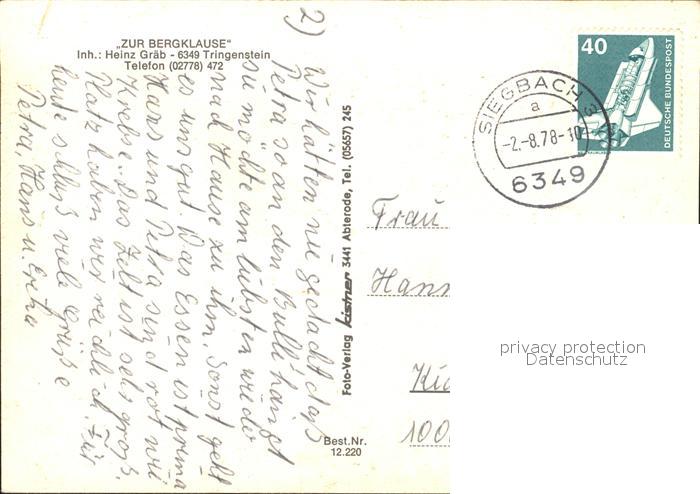 „ZUR BERGKLAUSE"
Inh.: Heinz Gräb - 6349 Tringenstein
Telefon (02778) 472
2)
Wir hätten nie gedacht daß
Petra so an den Bulli hängt
sie möchte am liebsten wieder
nach Hause zu ihm. Sonst geht
es uns gut. Das Essen ist prima
Hans und Petra sind rot wie
Krebse. Das Zelt ist sehr groß.
Platz haben wir reichlich. Für
heute schluß viele Grüße
Petra, Hans u.
Foto-Verlag kistner 3441 Abterode, Tel. (05657) 245
Best.Nr.
12.220
40
DEUTSCHE BUNDESPOST
SIEGBACH 3
a
-2.-8.78-10
6349
Frau
Hann
100
privacy protection
Datenschutz